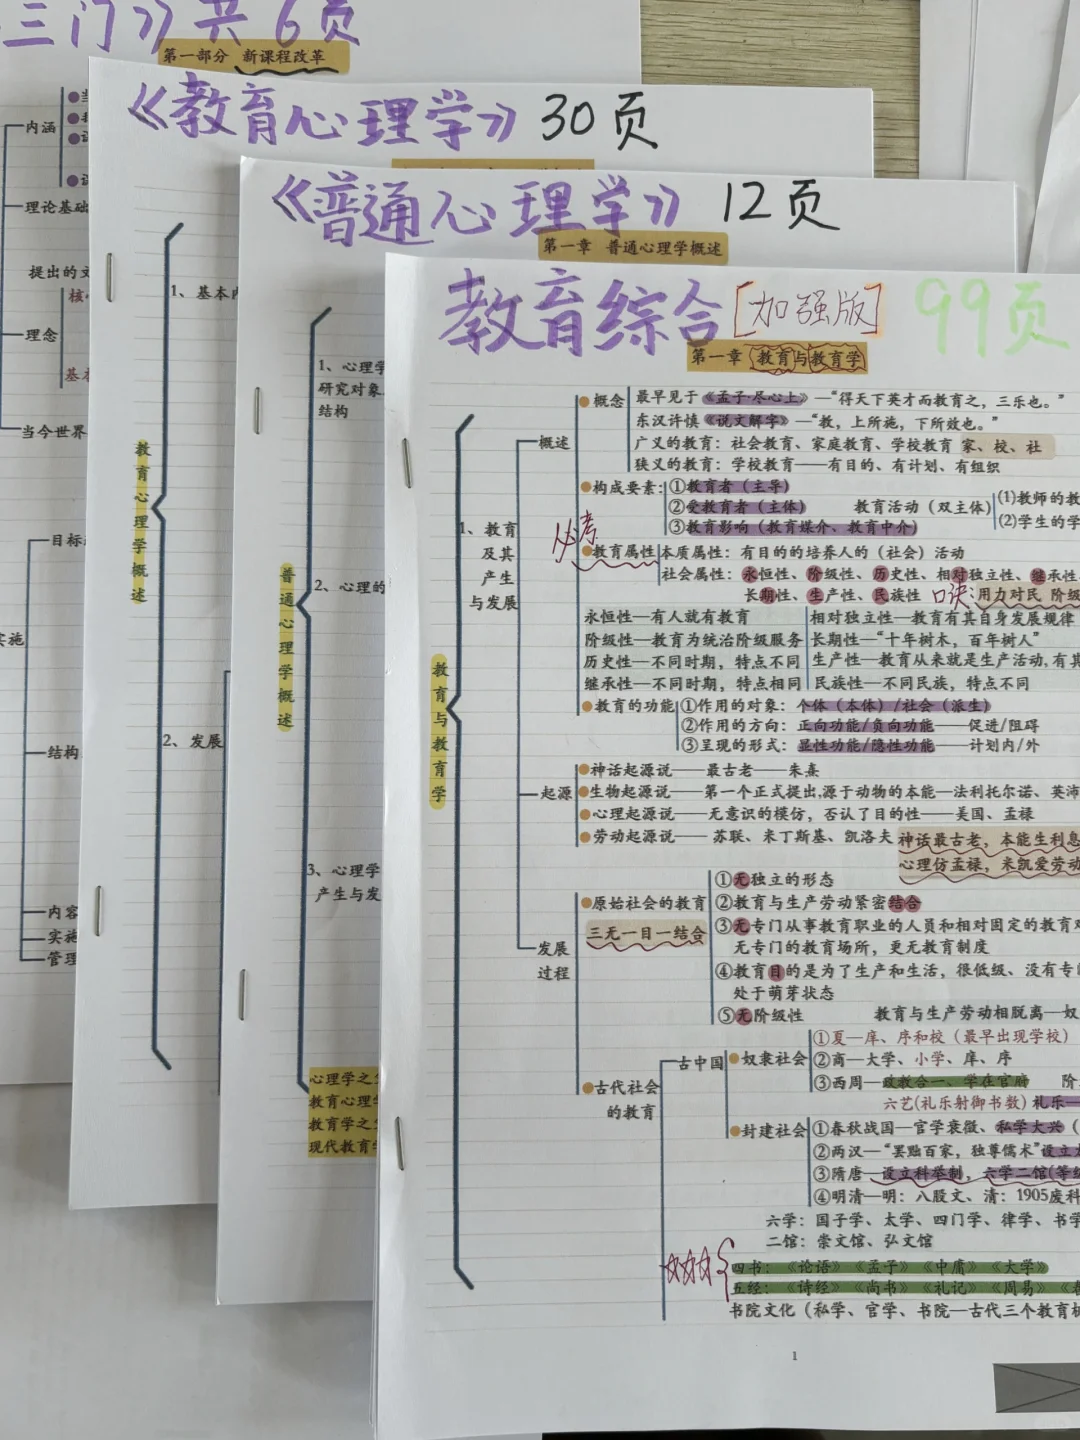 三门》共6页
第一部分 新课程改革
内涵
理论基础
提出的
理念
当今世界
目标
实施
结构
内容
实施
管理
《教育心理学》30页
教育心理学概述
1、基本
2、发展
《普通心理学》12页
第一章 普通心理学概述
普通心理学概述
1、心理学
研究对象
结构
2、心理的
3、心理学
产生与发
心理学之
教育心理
教育学之
现代教育
教育综合[加强版] 99页
第一章 教育与教育学
教育与教育学
1、教育及其产生与发展
概述
概念
最早见于《孟子·尽心上》—“得天下英才而教育之，三乐也。”
东汉许慎《说文解字》—“教，上所施，下所效也。”
广义的教育：社会教育、家庭教育、学校教育 家、校、社
狭义的教育：学校教育——有目的、有计划、有组织
构成要素：①教育者（主导）
②受教育者（主体） 教育活动（双主体） (1)教师的教
③教育影响（教育媒介、教育中介） (2)学生的学
必考
教育属性 本质属性：有目的的培养人的（社会）活动
社会属性：永恒性、阶级性、历史性、相对独立性、继承性
长期性、生产性、民族性 口诀：用力对民 阶级
永恒性—有人就有教育 相对独立性—教育有其自身发展规律
阶级性—教育为统治阶级服务 长期性—“十年树木，百年树人”
历史性—不同时期，特点不同 生产性—教育从来就是生产活动，有其
继承性—不同时期，特点相同 民族性—不同民族，特点不同
教育的功能 ①作用的对象：个体（本体）/社会（派生）
②作用的方向：正向功能/负向功能——促进/阻碍
③呈现的形式：显性功能/隐性功能——计划内/外
起源
神话起源说——最古老——朱熹
生物起源说——第一个正式提出，源于动物的本能—法利托尔诺、英沛
心理起源说——无意识的模仿，否认了目的性——美国、孟禄
劳动起源说——苏联、米丁斯基、凯洛夫 神话最古老，本能生利息
心理仿孟禄，米凯爱劳动
发展过程
原始社会的教育
三无一目一结合
①无独立的形态
②教育与生产劳动紧密结合
③无专门从事教育职业的人员和相对固定的教育对
无专门的教育场所，更无教育制度
④教育目的是为了生产和生活，很低级、没有专
处于萌芽状态
⑤无阶级性 教育与生产劳动相脱离—奴
古代社会的教育
古中国
奴隶社会
①夏—庠、序和校（最早出现学校）
②商—大学、小学、庠、序
③西周—政教合一、学在官府 阶
六艺(礼乐射御书数) 礼乐—
封建社会
①春秋战国—官学衰微、私学大兴（
②两汉—“罢黜百家，独尊儒术”设立太
③隋唐—设立科举制，六学二馆(等级
④明清—明：八股文、清：1905废科
六学：国子学、太学、四门学、律学、书学
二馆：崇文馆、弘文馆
四书：《论语》《孟子》《中庸》《大学》
五经：《诗经》《尚书》《礼记》《周易》《春
书院文化（私学、官学、书院—古代三个教育机
1